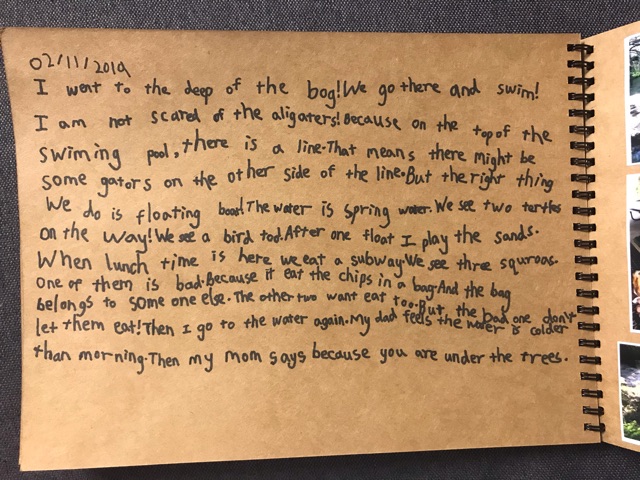 02/11/2019
I went to the deep of the bog! We go there and swim!
I am not scared of the aligaters! Because on the top of the
swiming pool, there is a line. That means there might be
some gators on the other side of the line. But the right thing
We do is floating boat! The water is spring water. We see two turtles
on the way! We see a bird too. After one float I play the sands.
When lunch time is here we eat a subway. We see three squroos.
One of them is bad. Because it eat the chips in a bag. And the bag
belongs to some one else. The other two want eat too. But the bad one don't
let them eat! Then I go to the water again. My dad feels the water is colder
than morning. Then my mom says because you are under the trees.